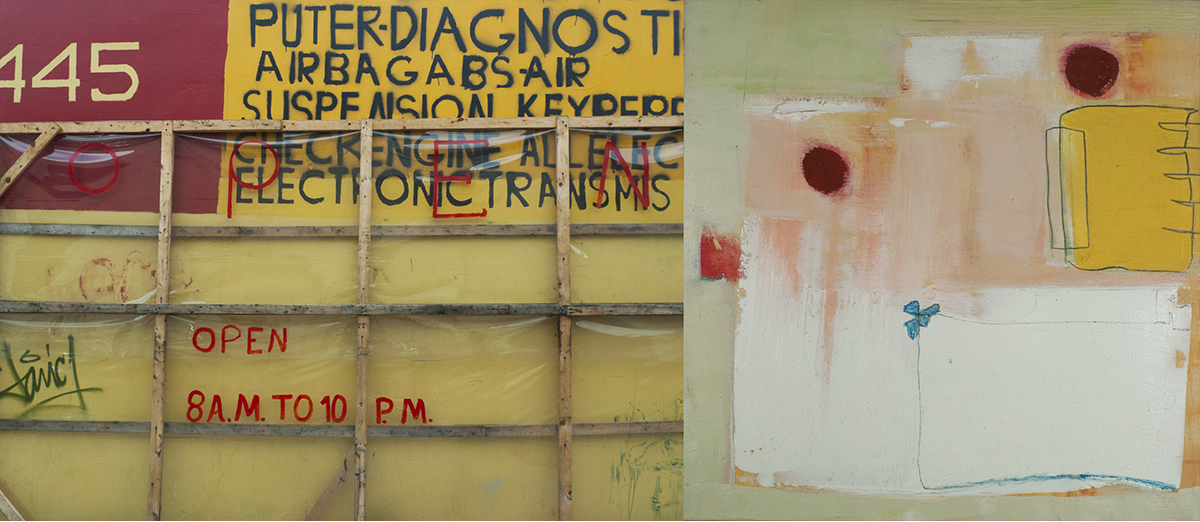 445
PUTER-DIAGNOSTI
AIRBAGABS-AIR
SUSPENSION KEYPERP
CHECK ENGINE ALL ELEC
ELECTRONIC TRANSMIS
OPEN
OPEN
8 A.M. TO 10 P.M.